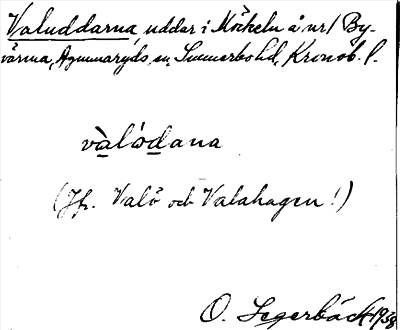 Valuddarna, uddar i Möckeln å nr 1 By-
värma, Agunnaryds sn, Sunnerbo hd, Kronob. l.
valódana
(Jfr. Valö och Valahagen!)
O. Segerbäck 1938